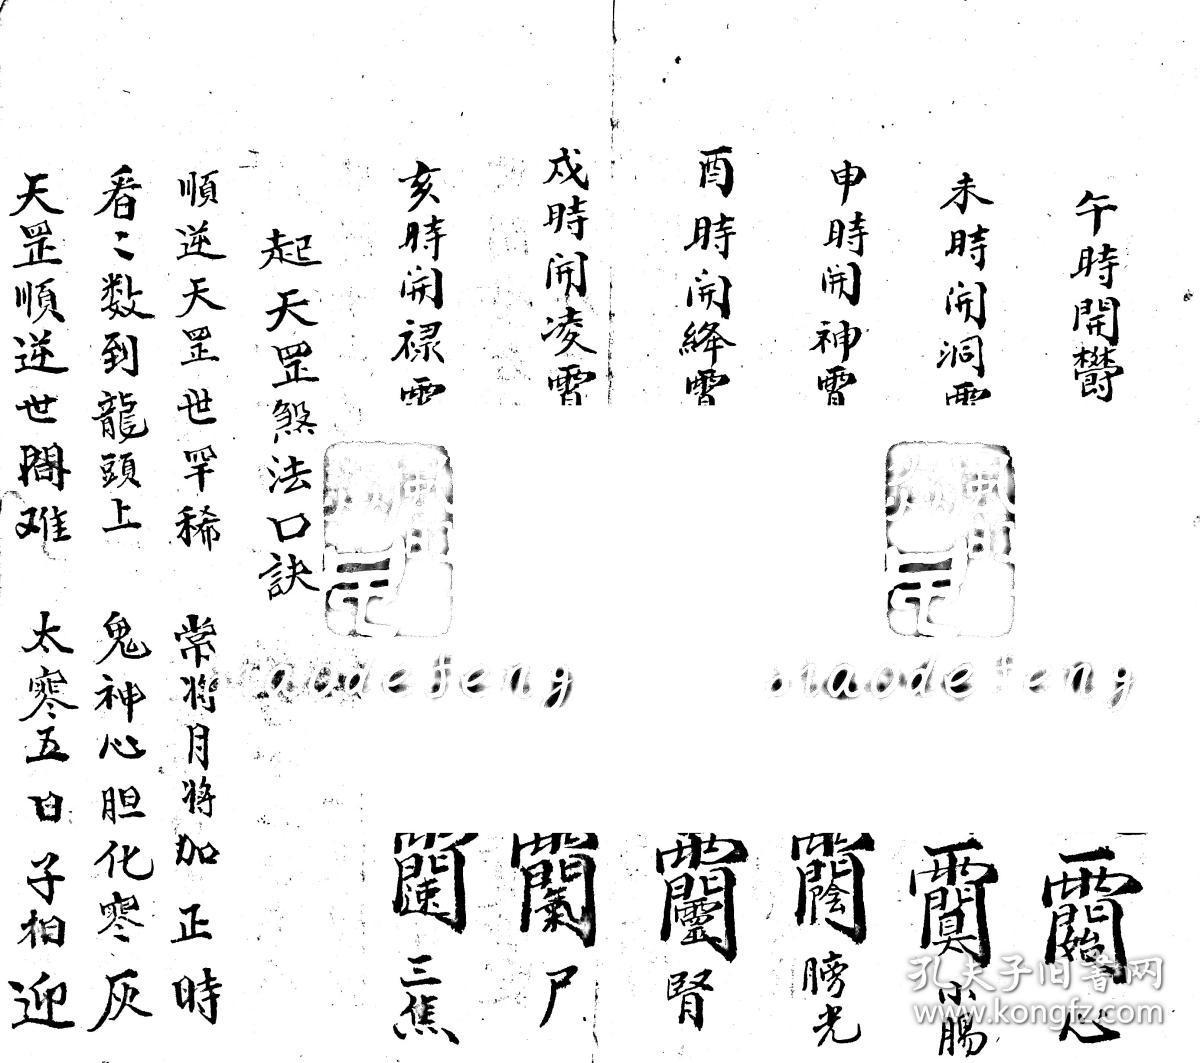 午時開欝
未時開洞
申時開神霄
酉時開絳霄
戌時開凌霄
亥時開禄
心
小腸
膀光
腎
尸
三焦
起天罡煞法口訣
順逆天罡世罕稀 常将月将加正時
看々数到龍頭上 鬼神心胆化寒灰
天罡順逆世間难 太寒五日子相迎
孔夫子旧书网
www.kongfz.com